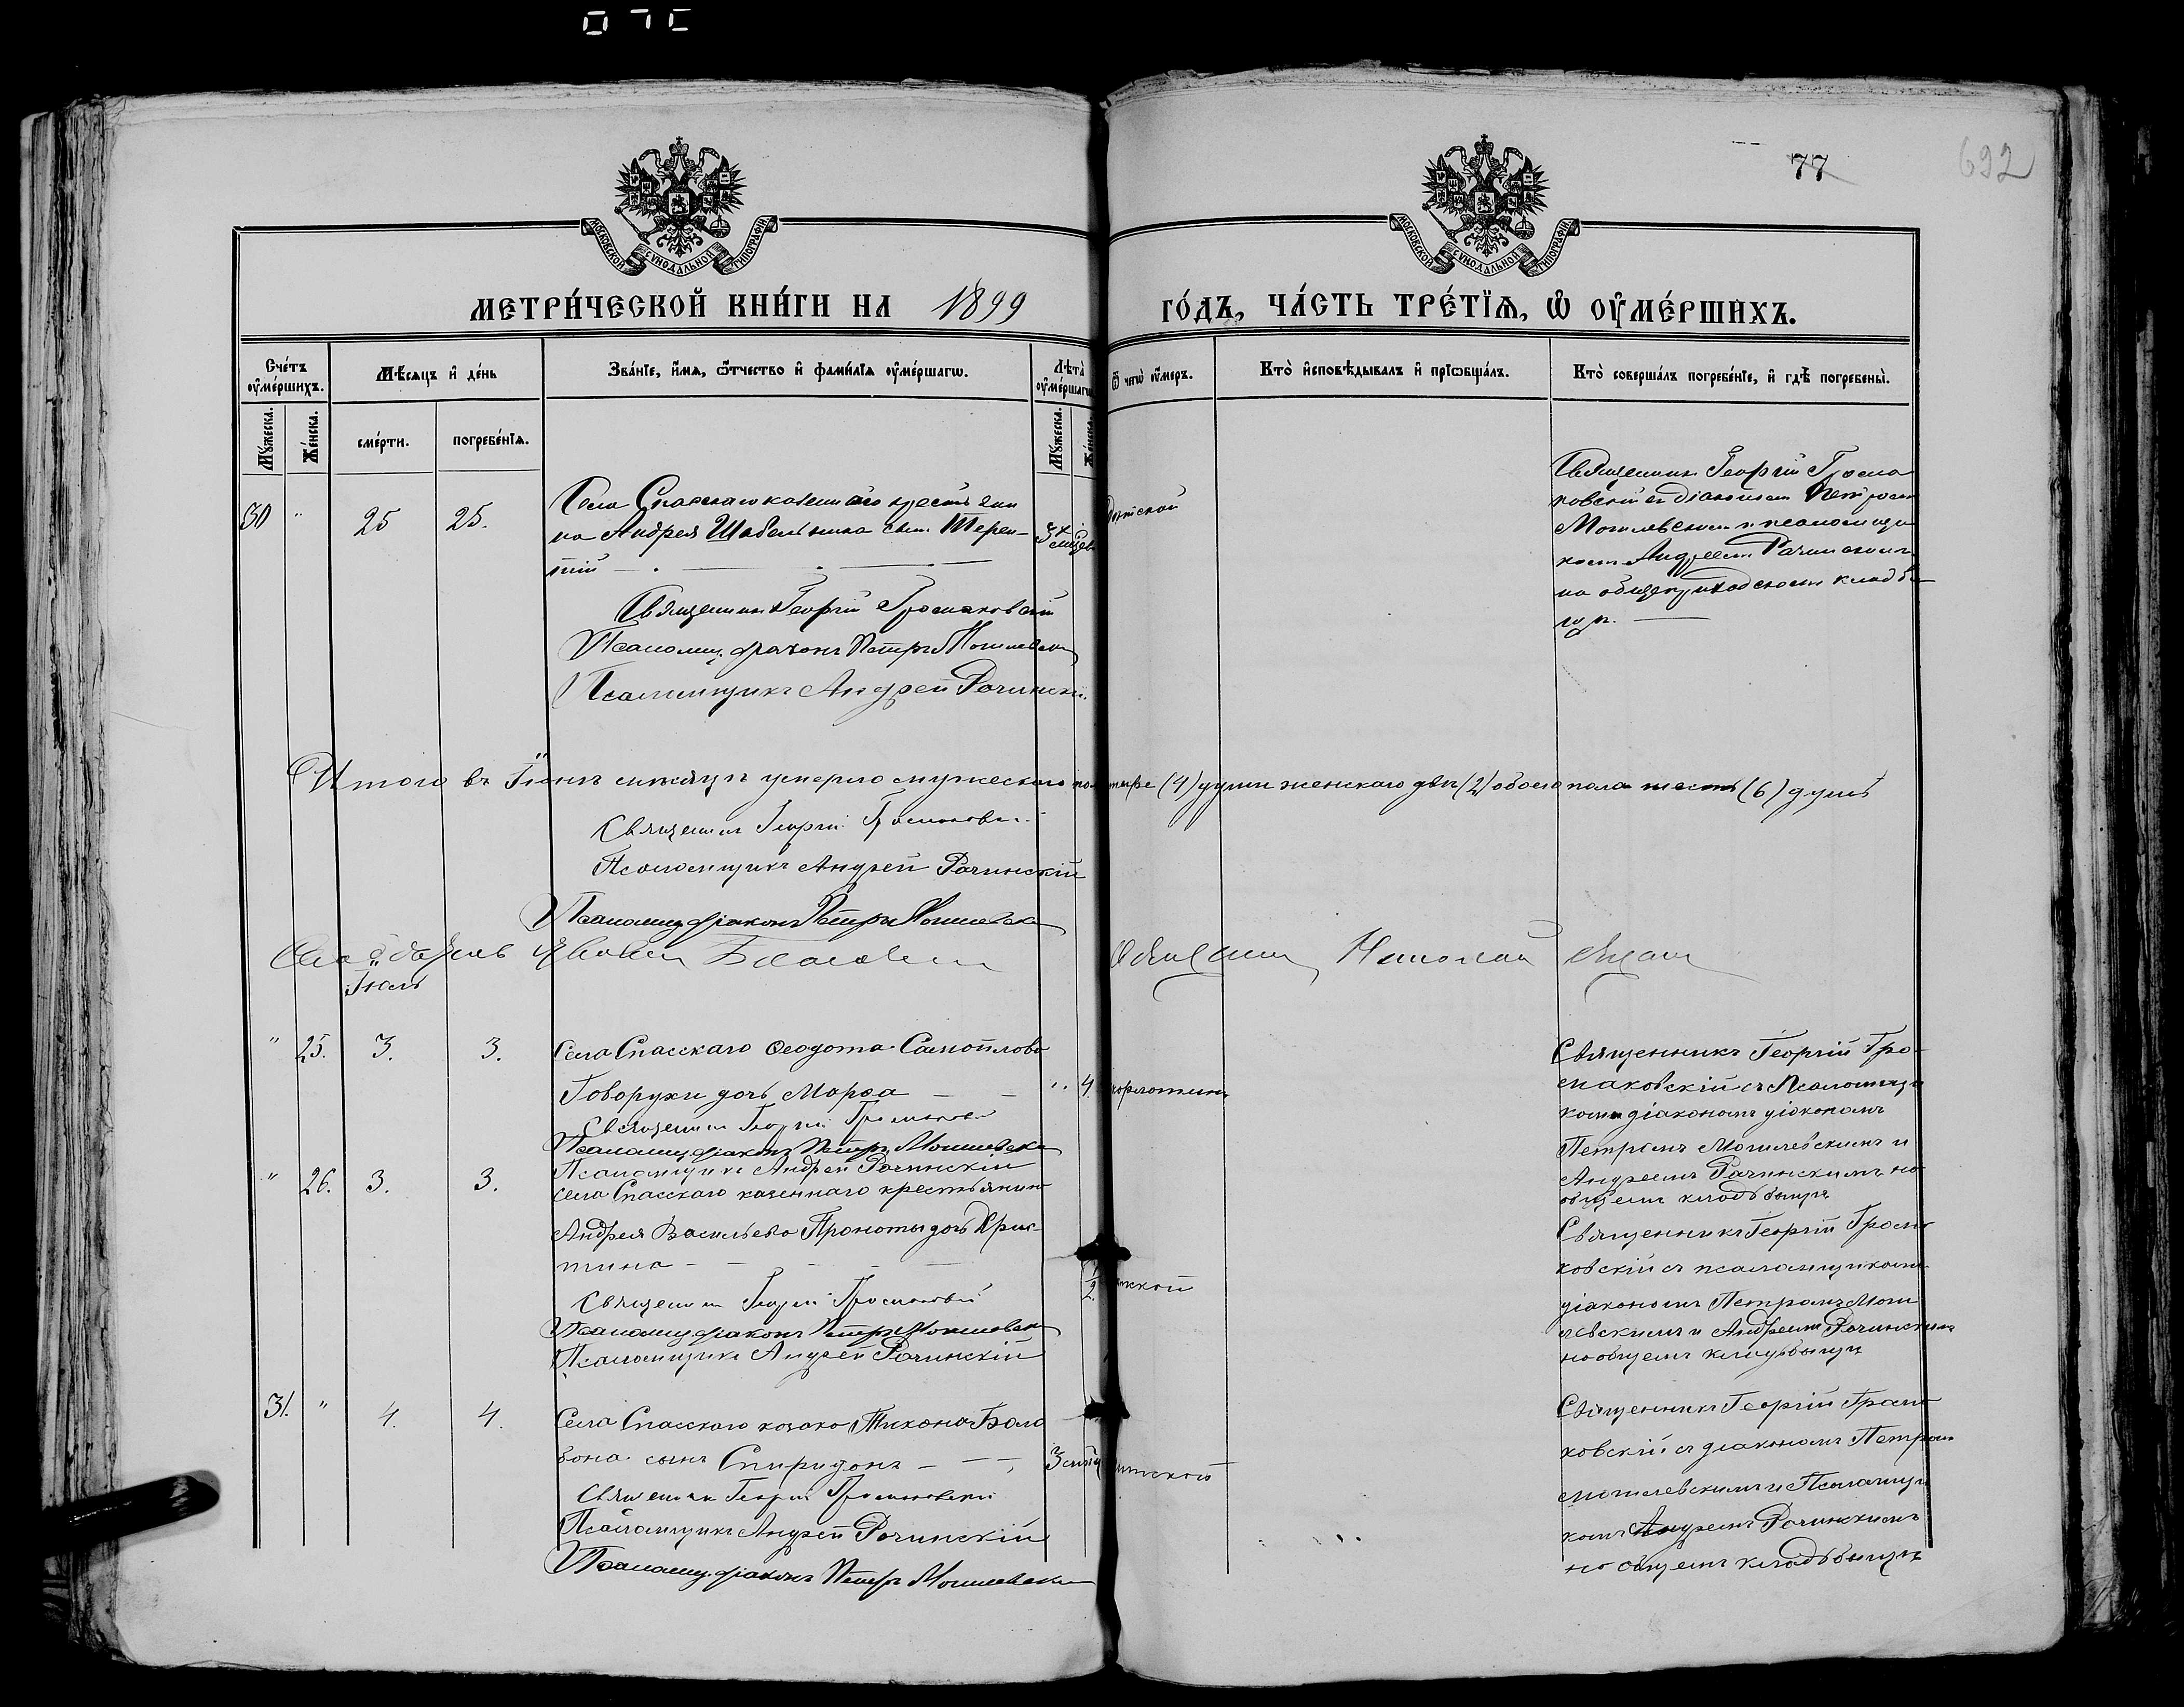 77
692
МОСКОВСКОЙ СѴНОДАЛЬНОЙ ТИПОГРАФІИ
МОСКОВСКОЙ СѴНОДАЛЬНОЙ ТИПОГРАФІИ
МЕТРИ́ЧЕСКОЙ КНИ́ГИ НА 1899 ГО́ДЪ, ЧА́СТЬ ТРЕ́ТЇѦ, Ѡ ОУ҆МЕ́РШИХЪ.
Сче́тъ оу҆ме́ршихъ.
Мѣ́сяцъ и҆ де́нь
Зва́нїе, и҆́мя, ѻ҆́тчество и҆ фами́лїѧ оу҆ме́ршагѡ.
Лѣта̀ оу҆ме́ршагѡ
Ѿ чегѡ̀ оу҆́меръ.
Кто̀ и҆сповѣ́дывалъ и҆ прїѡбща́лъ.
Кто̀ соверша́лъ погребе́нїе, и҆ гдѣ̀ погребены̀.
Мꙋ́жеска.
Же́нска.
сме́рти.
погребе́нїѧ.
Мꙋ́жеска.
30 " 25 25.
Села Спасскаго казеннаго крестьяни
на Андрея Шабельника сын Терен-
тій
Священникъ Георгій Громаковскій
Псаломщ. діаконъ Петръ Могилевскій
Псаломщикъ Андрей Рачинскій.
Священникъ Георгій Грома
ковскій съ діакономъ Петромъ
Могилевскимъ и псаломщи
комъ Андреемъ Рачинскимъ
на общеприходскомъ кладби
щѣ.
Итого въ Іюнѣ мѣсяцѣ умерло мужескаго четыре (4) души женскаго двѣ (2) обоего пола шесть (6) душъ
Священникъ Георгій Громаковскій
Псаломщикъ Андрей Рачинскій
Псаломщ. діаконъ Петръ Могилевскій
Николай
Іюль
" 25. 3. 3.
Села Спасскаго Ѳеодота Самойлова
Говорухи дочь Марѳа
" 4.
Священникъ Георгій Громаковскій
Псаломщ. діаконъ Петръ Могилевскій
Псаломщикъ Андрей Рачинскій
Священникъ Георгій Гро-
маковскій съ Псаломщи
комъ діакономъ діакономъ
Петромъ Могилевскимъ и
Андреемъ Рачинскимъ на
общемъ кладбищѣ
" 26. 3. 3.
Села Спасскаго казеннаго крестьянина
Андрея Васильева дочь Крис-
тина
1/2.
Священникъ Георгій Громаковскій
Псаломщ. діаконъ Петръ Могилевскій
Псаломщикъ Андрей Рачинскій
Священникъ Георгій Грома
ковскій съ псаломщикомъ
діакономъ Петромъ Моги
левскимъ и Андреемъ Рачинскимъ
на общемъ кладбищѣ
31. " 4. 4.
Села Спасскаго казака Тихона Бала
бана сынъ Спиридонъ
Священникъ Георгій Громаковскій
Псаломщикъ Андрей Рачинскій
Псаломщ. діаконъ Петръ Могилевскій
Священникъ Георгій Грома
ковскій съ діакономъ Петромъ
Могилевскимъ и Псаломщи
комъ Андреемъ Рачинскимъ
на общемъ кладбищѣ